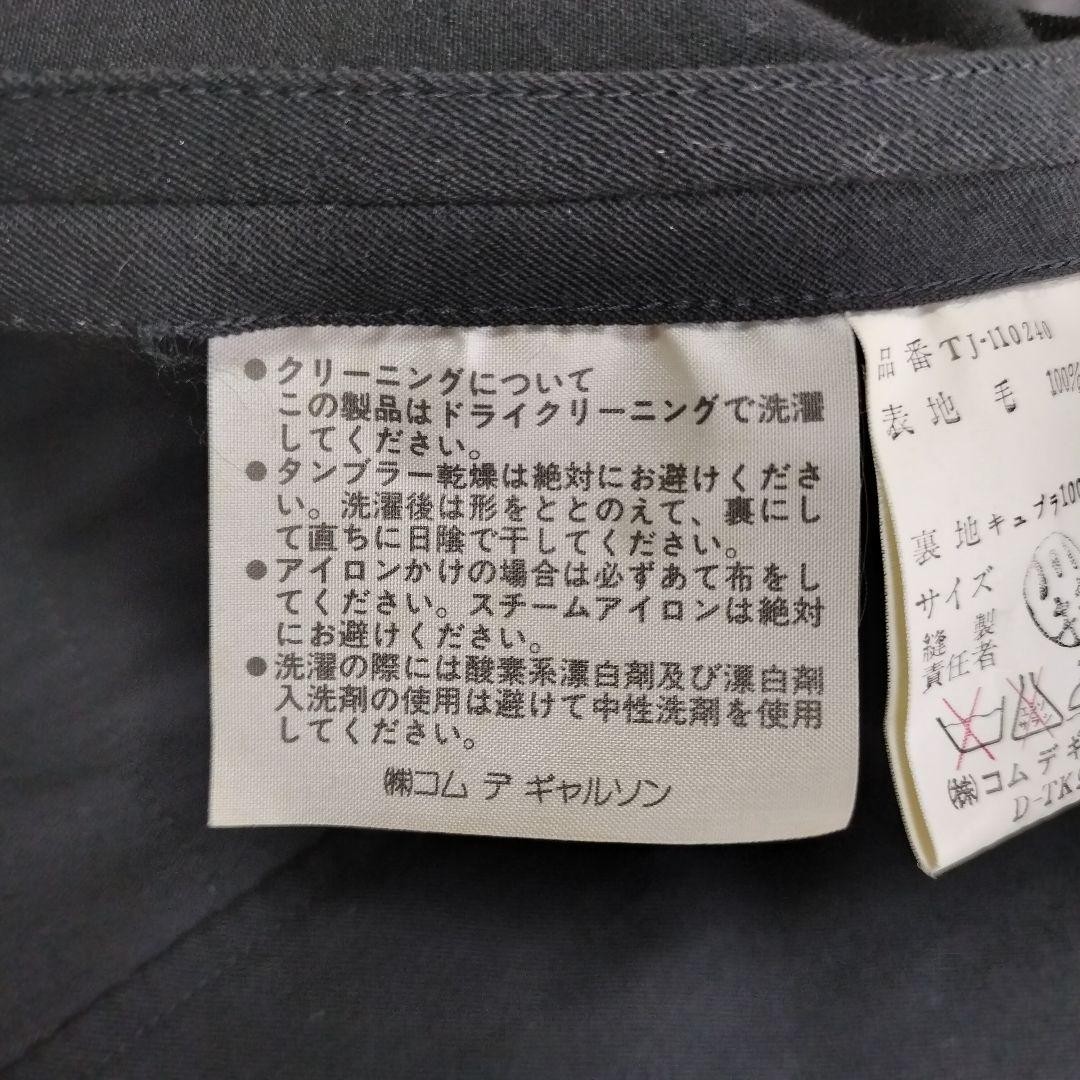 ●クリーニングについて
この製品はドライクリーニングで洗濯
してください。
●タンブラー乾燥は絶対にお避けくださ
い。洗濯後は形をととのえて、裏にし
て直ちに日陰で干してください。
●アイロンかけの場合は必ずあて布をし
てください。スチームアイロンは絶対
にお避けください。
●洗濯の際には酸素系漂白剤及び漂白剤
入洗剤の使用は避けて中性洗剤を使用
してください。
㈱コム デ ギャルソン
品番 TJ-110240
表地 毛 100%
裏地 キュプラ100
サイズ
縫製
責任者
エンソ
サラシ
㈱コム デ ギ
D-TK